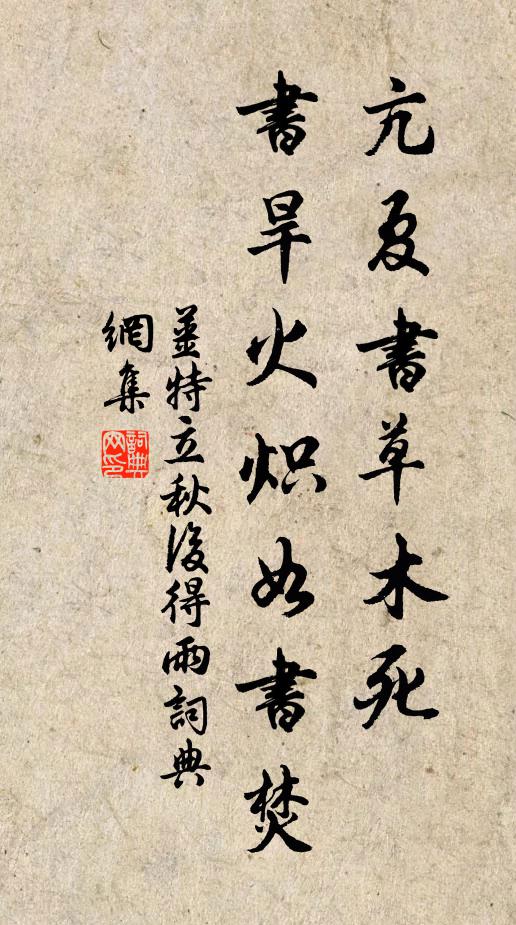 亢夏書草木死
書旱火炽如書焚
薑特立秋後得雨詞典
網集
詞典網印